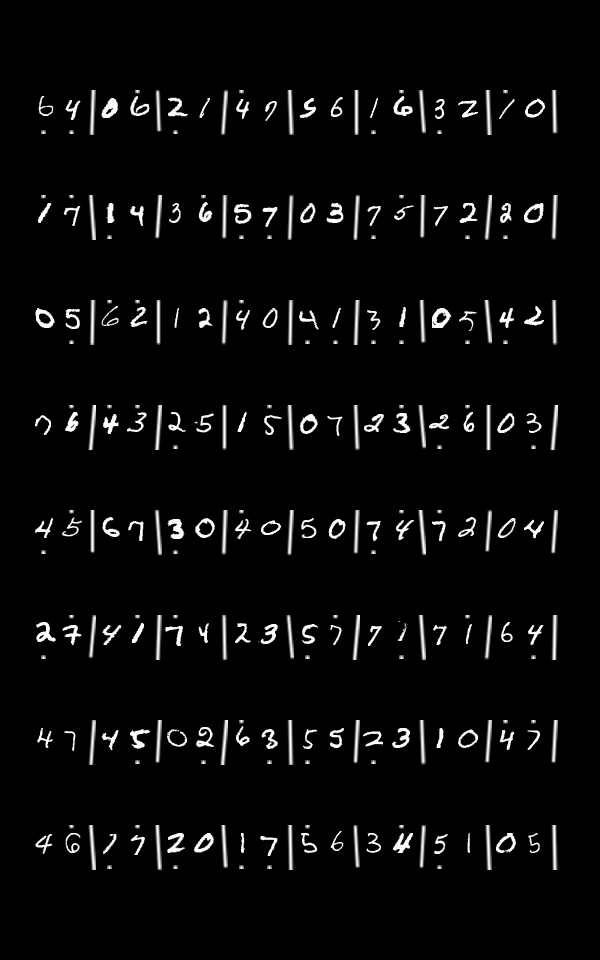 6 4 | 0 6 | 2 1 | 4 7 | 5 6 | 1 6 | 3 2 | 1 0 |
1 7 | 1 4 | 3 6 | 5 7 | 0 3 | 7 5 | 7 2 | 2 0 |
0 5 | 6 2 | 1 2 | 4 0 | 4 1 | 3 1 | 0 5 | 4 2 |
7 6 | 4 3 | 2 5 | 1 5 | 0 7 | 2 3 | 2 6 | 0 3 |
4 5 | 6 7 | 3 0 | 4 0 | 5 0 | 7 4 | 7 2 | 0 4 |
2 7 | 4 1 | 7 4 | 2 3 | 5 7 | 7 1 | 7 1 | 6 4 |
4 7 | 4 5 | 0 2 | 6 3 | 5 5 | 2 3 | 1 0 | 4 7 |
4 6 | 1 7 | 2 0 | 1 7 | 5 6 | 3 4 | 5 1 | 0 5 |